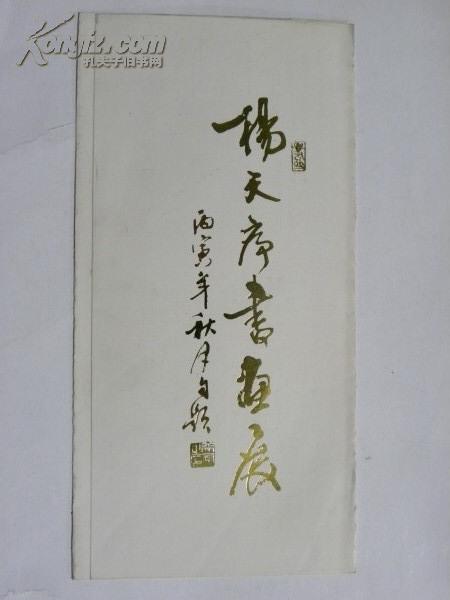 Kongfz.com
孔夫子旧书网
楊天序書画展
丙寅年秋月自题